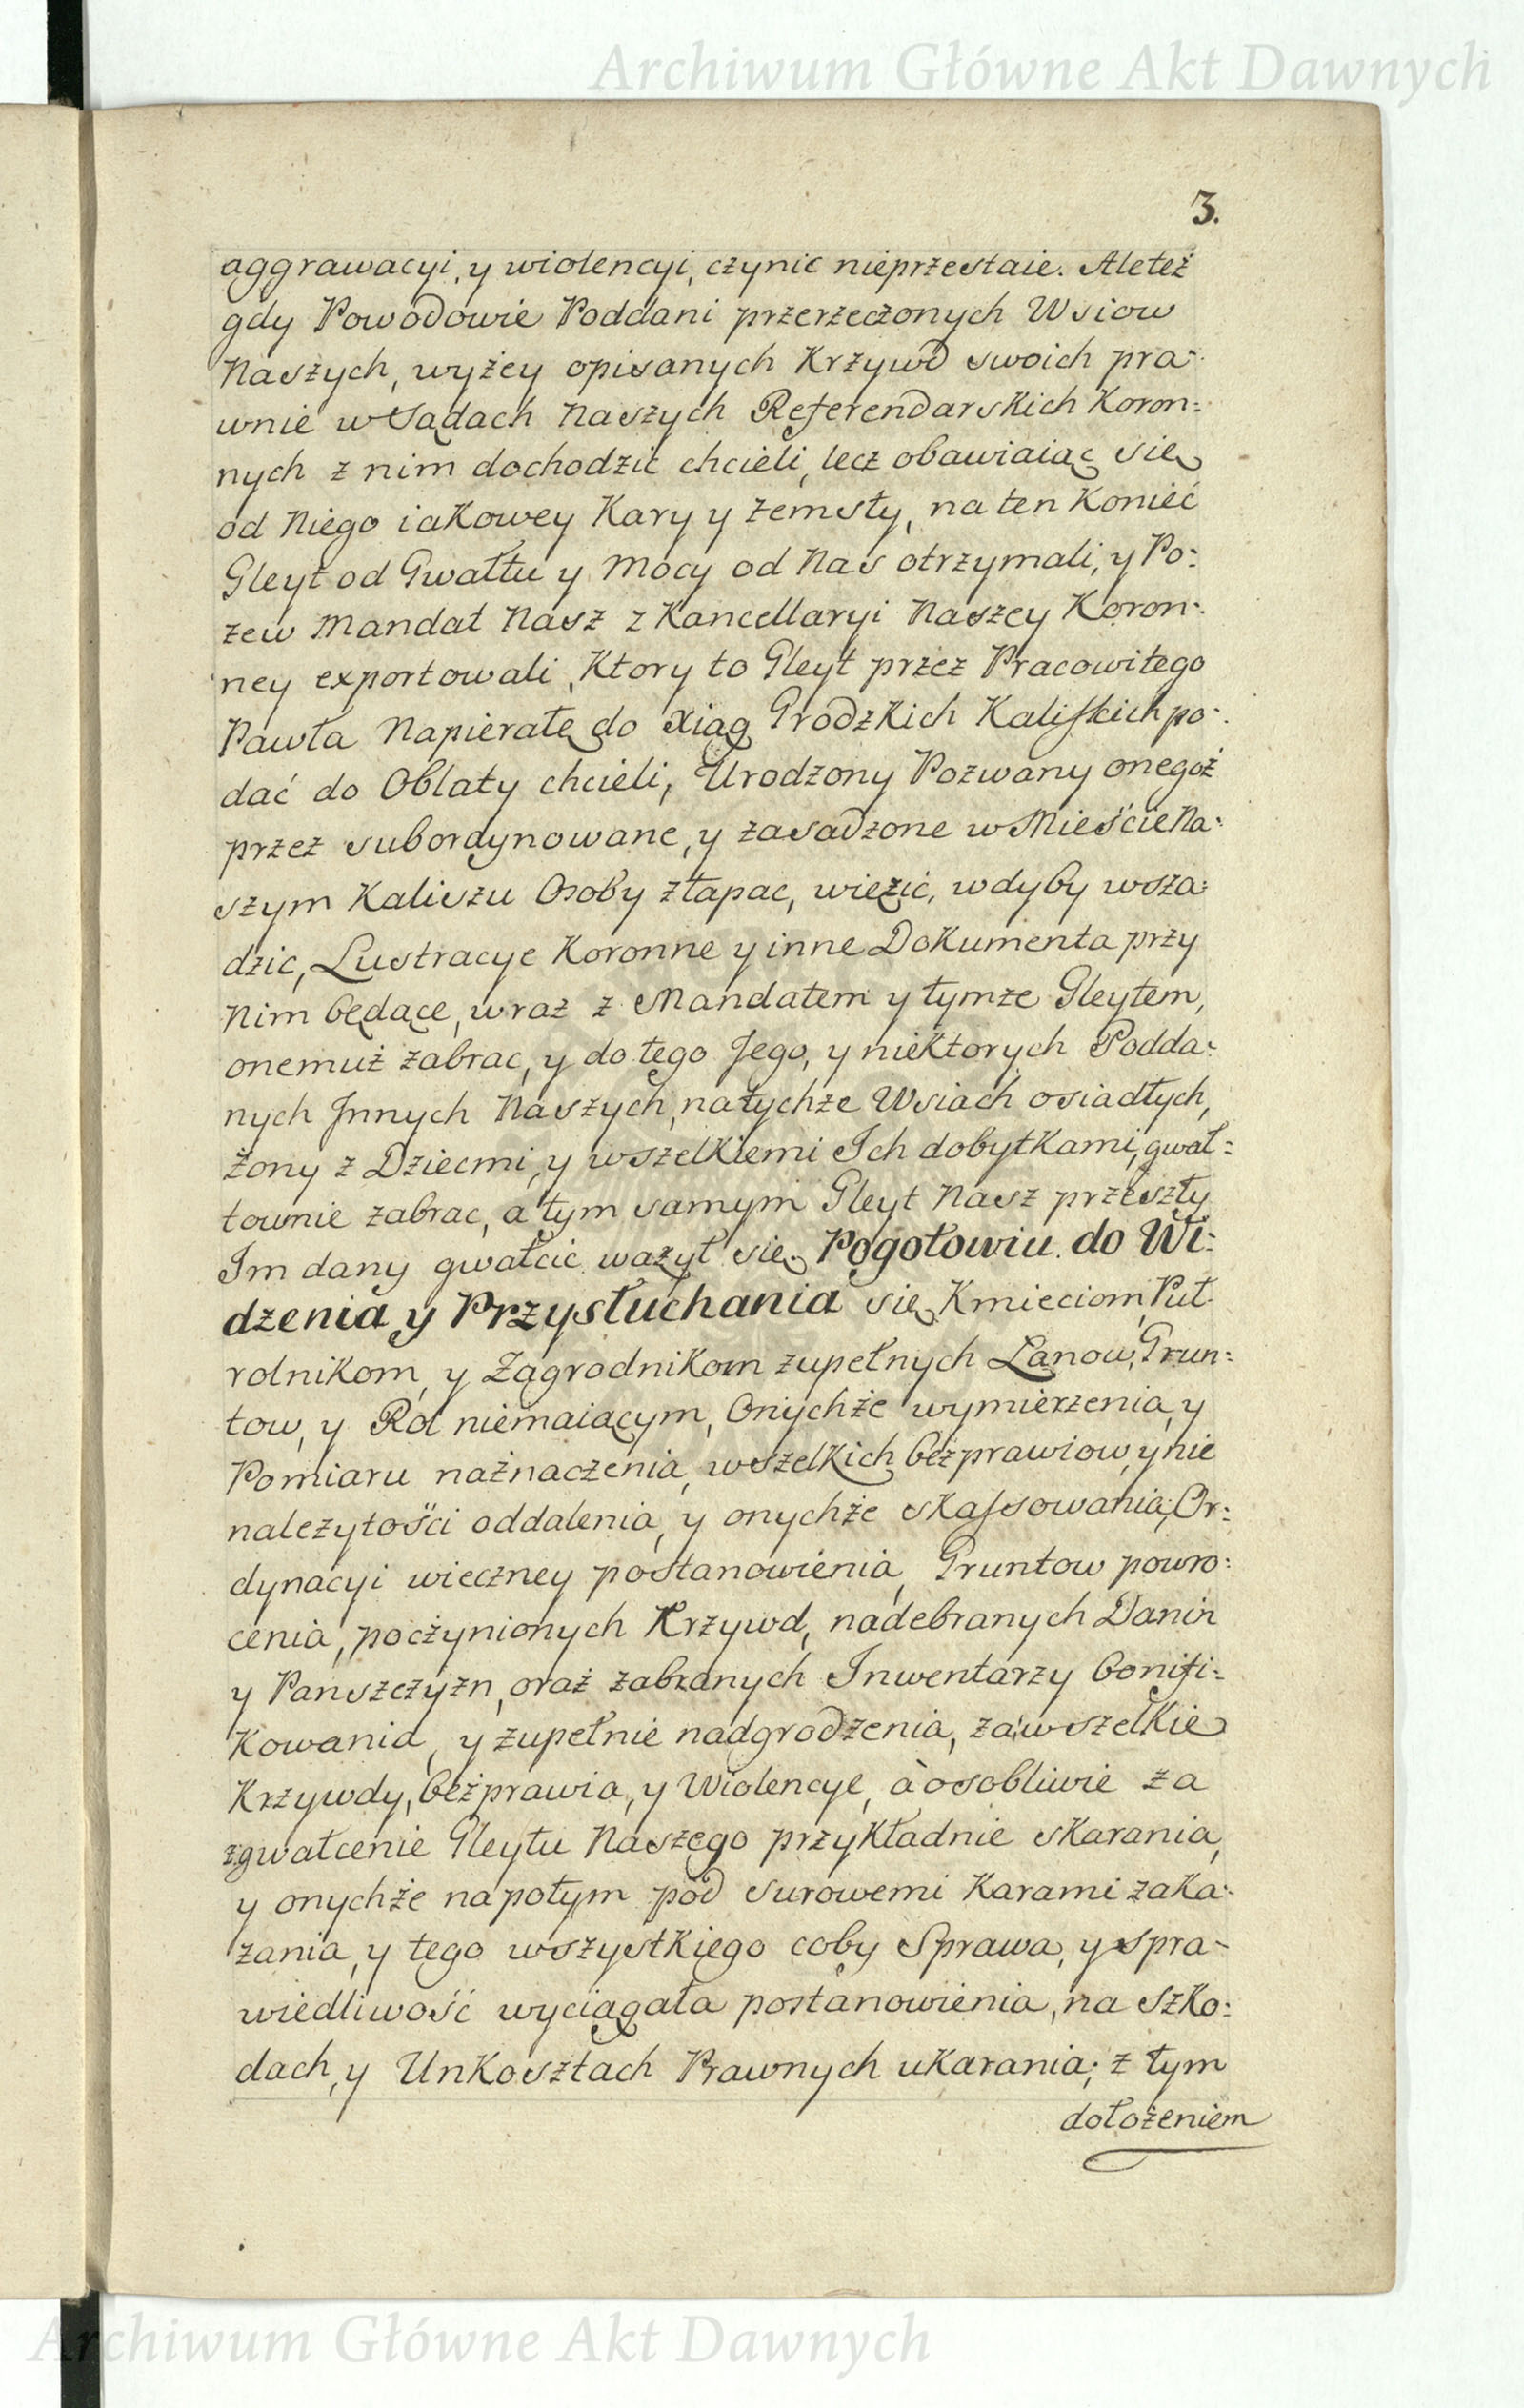 Archiwum Główne Akt Dawnych
3.
aggrawacyi, y wiolencyi, czynic nieprzestaie. Aleteż
gdy Powodowie Poddani przerzeczonych Wsiow
Naszych, wyżey opisanych Krzywd swoich pra-
wnie w Sądach Naszych Referendarskich Koron:
nych z nim dochodzić chcieli, lecz obawiaiąc się
od Niego iakowey Kary y zemsty, na ten Konieć
Gleyt od Gwałtu y Mocy od Nas otrzymali, y Po:
zew Mandat Nasz z Kancellaryi Naszey Koron:
ney exportowali, Ktory to Gleyt przez Pracowitego
Pawła Napierałę do Xiąg Grodzkich Kaliskich po:
dać do Oblaty chcieli, Urodzony Pozwany onegoż
przez subordynowane, y zasadzone w Mieście Na:
szym Kaliszu Osoby złapac, więzić, wdyby wsza:
dzic, Lustracye Koronne y inne Dokumenta przy
Nim będące, wraz z Mandatem y tymże Gleytem,
onemuż zabrac, y do tego Jego, y niektorych Podda:
nych Jnnych Naszych, natychże Wsiach osiadłych,
żony z Dziecmi, y wszelkiemi Ich dobytkami, gwał:
townie zabrac, a tym samym Gleyt Nasz przeszły
Im dany gwałcic ważył się. Pogotowiu do Wi:
dzenia y Przysłuchania się Kmieciom, Puł
rolnikom, y Zagrodnikom zupełnych Lanow, Grun:
tow, y Rol niemaiącym, Onychże wymierzenia, y
Pomiaru naznaczenia, wszelkich bezprawiow, y nie
należytości oddalenia, y onychże skassowania, Or:
dynacyi wieczney postanowienia, Gruntow powro:
cenia, poczynionych Krzywd, nadebranych Danin
y Panszczyzn, oraz zabranych Inwentarzy bonifi:
kowania, y zupełnie nadgrodzenia, zawszelkie
Krzywdy, bezprawia, y Wiolencye, à osobliwie za
zgwałcenie Gleytu Naszego przykładnie skarania,
y onychże napotym pod surowemi Karami zaka:
zania, y tego wszystkiego coby Sprawa, y spra-
wiedliwość wyciągała postanowienia, na szko:
dach, y Unkosztach Prawnych ukarania; z tym
dołożeniem
Archiwum Główne Akt Dawnych